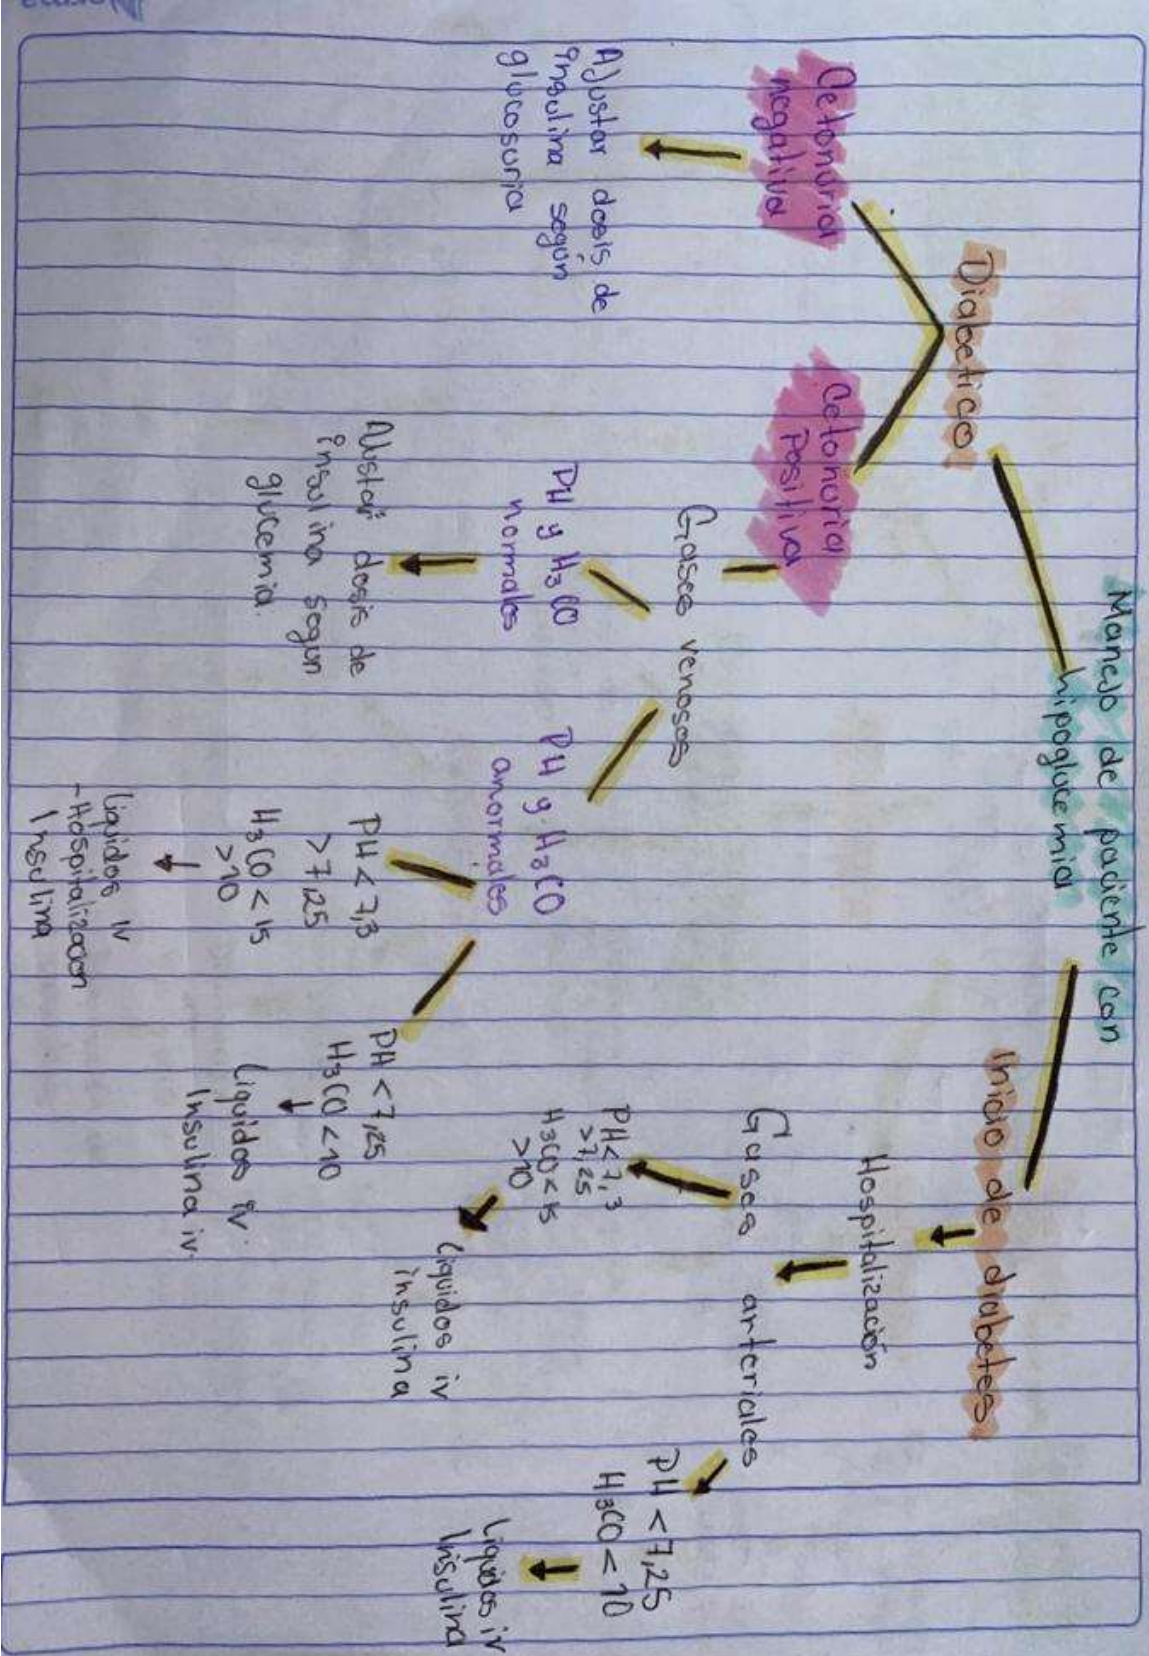 Manejo de paciente con
hipoglucemia
Diabetico
Cetonuria
negativa
Ajustar dosis de
insulina según
glucosuria
Cetonuria
Positiva
Gases venosos
PH y H3CO
normales
Ajustar dosis de
insulina segun
glucemia.
PH y H3CO
anormales
PH < 7,3
> 7,25
H3CO < 15
> 10
Liquidos iv
- Hospitalizacion
Insulina
PH < 7,25
H3CO < 10
Liquidos iv.
Insulina iv.
Inicio de diabetes
Hospitalización
Gases arteriales
PH < 7,3
> 7,25
H3CO < 15
> 10
Liquidos iv
insulina
PH < 7,25
H3CO < 10
Liquidos iv
Insulina